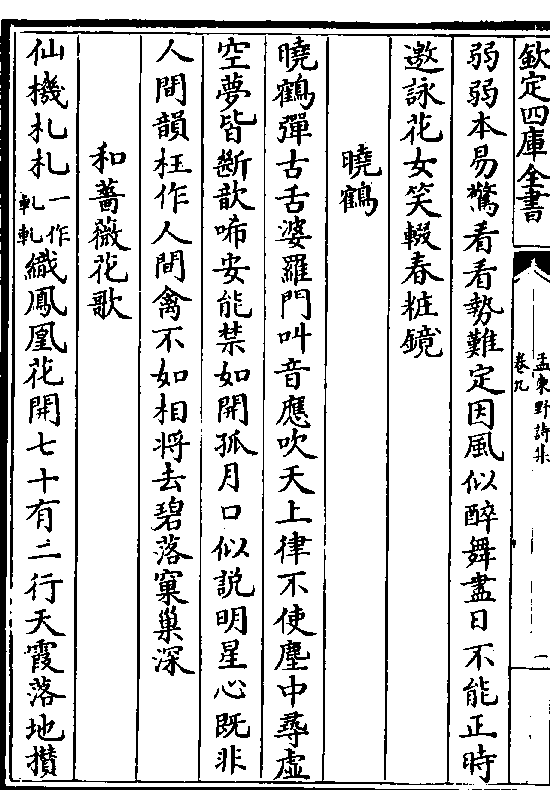 欽定四庫全書
孟東野詩集
卷九
二
弱弱本易驚看看勢難定因風似醉舞盡日不能正時
邀詠花女笑輟春粧鏡
曉鶴
曉鶴彈古舌婆羅門叫音應吹天上律不使塵中尋虛
空夢皆斷歆唏安能禁如開孤月口似説明星心既非
人間韻枉作人間禽不如相將去碧落窠巢深
和薔薇花歌
仙機札札一作軋軋織鳳凰花開七十有二行天霞落地攅